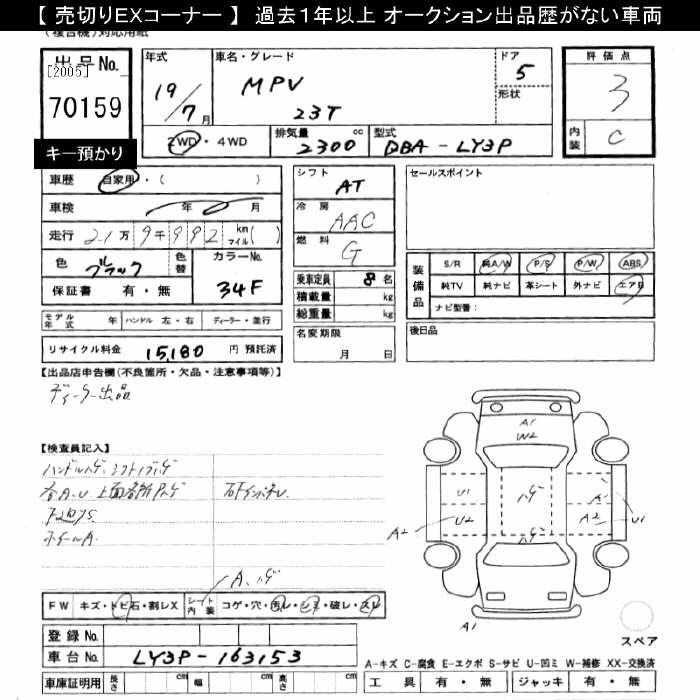 【 売切りEXコーナー 】 過去１年以上 オークション出品歴がない車両
(複合機)対応用紙
出品No.
[2005]
70159
キー預かり
年式 19/7月
車名・グレード MPV 23T
ドア 5
形状
評価点 3
内装 C
2WD・4WD
排気量 2300 cc
型式 DBA-LY3P
車歴 自家用・( )
車検 年 0 月
走行 2.1万9千992 km マイル( )
色 ブルブラック 色替 カラーNo. 34F
保証書 有・無
シフト AT
冷房 AAC
燃料 G
乗車定員 8 名
積載量 kg
総重量 kg
名変期限 月 日
セールスポイント
装備品 S/R 純A/W P/S P/W ABS
純TV 純ナビ 革シート 外ナビ エアB
ナビ型番:
後日品
モデル年式 年 ハンドル 左・右 ディーラー・並行
リサイクル料金 15,180 円 預託済
【出品店申告欄(不良箇所・欠品・注意事項等)】
ディーラー出品
【検査員記入】
ハンドルハゲ、シフトノブハゲ
各A.U
ホイールA.
A1
W2
U1
U2
A2
ハゲ
A
A2
U1
A1
A、ハゲ
FW キズ・トビ石・割レX シート内装 コゲ・穴・汚レ・シミ・破レ・スレ
登録No.
車台No. LY3P-163153
車庫証明用 長さ cm 幅 cm 高さ cm
スペア
A-キズ C-腐食 E-エクボ S-サビ U-凹ミ W-補修 XX-交換済
工具 有・無 ジャッキ 有・無